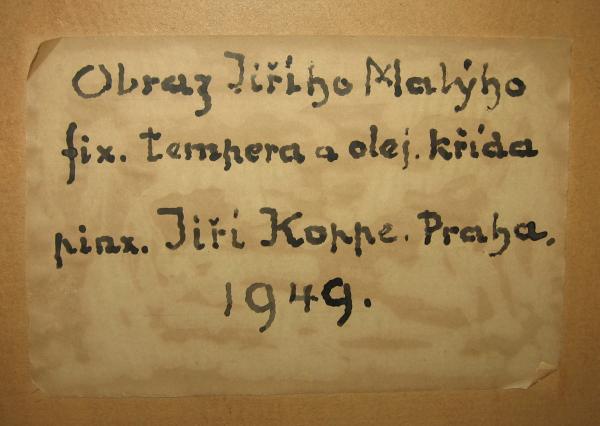 Obraz Jiřího Malýho
fix. tempera a olej. křída
pinx. Jiří Koppe. Praha,
1949.